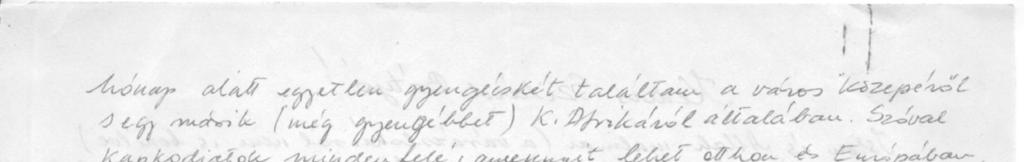 hónap alatt egyetlen gyengécskét találtam a város közepéről
s egy másik (még gyengébbet) K. Afrikáról általában. Szóval
kapkodjatok mindenfelé, amennyit lehet otthon és Európában